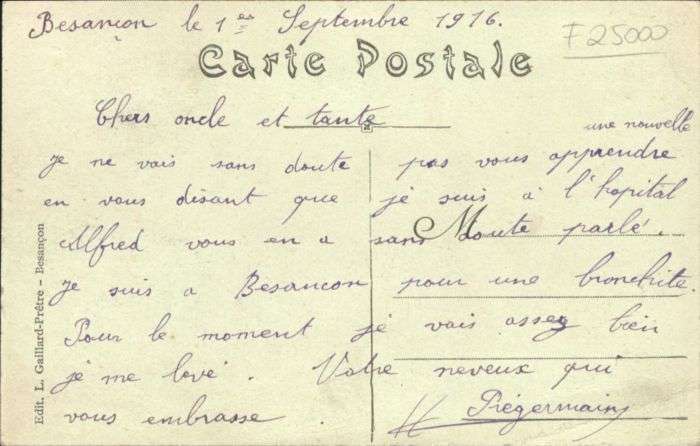 Besançon le 1er Septembre 1916.
F25000
Carte Postale
Chers oncle et tante
une nouvelle
Je ne vais sans doute pas vous apprendre
en vous disant que je suis à l'hopital
Alfred vous en a sans doute parlé.
Je suis a Besançon pour une bronchite.
Pour le moment je vais assez bien
je me lové. Votre neveux qui
vous embrasse
Edit. L. Gaillard-Prêtre - Besançon